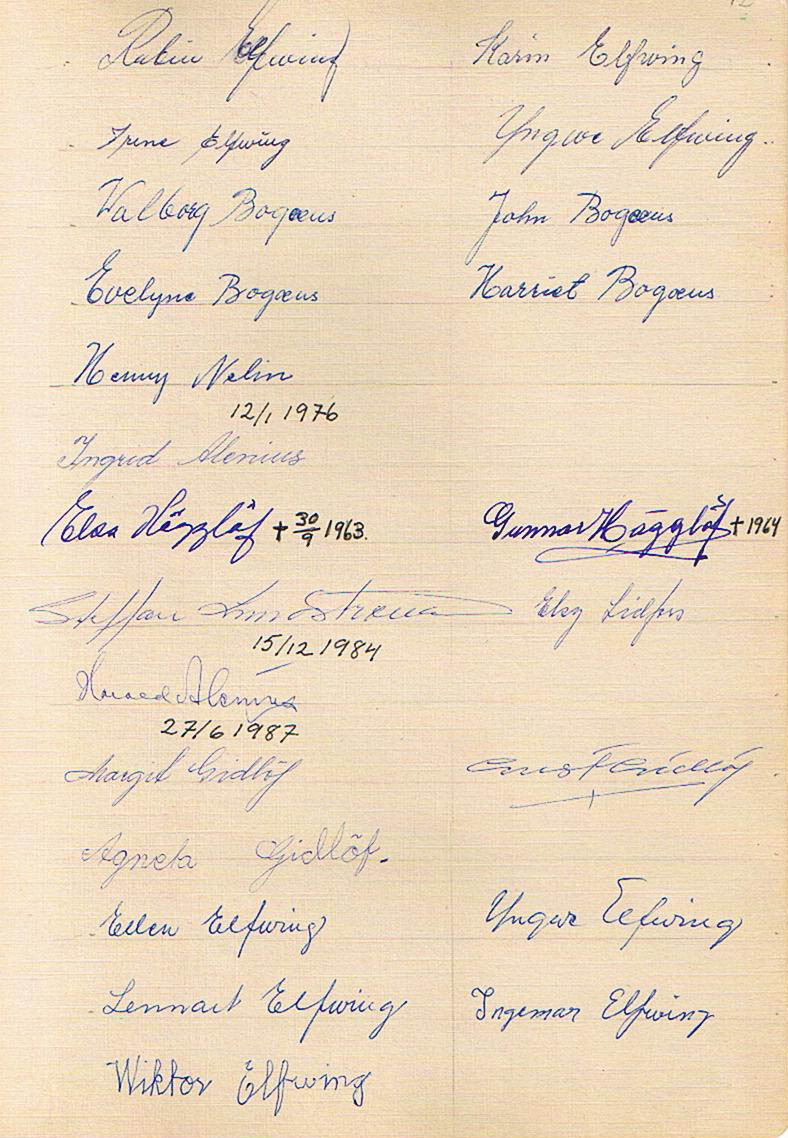 Rubin Elfwing Karin Elfwing
Irene Elfwing Yngwe Elfwing
Walborg Bogæus John Bogæus
Evelyne Bogæus Harriet Bogæus
Henny Nelin
12/1 1976
Ingrid Alenius
Elsa Hägglöf + 30/9 1963. Gunnar Hägglöf + 1964
Steffan Lindström Elsy Lidfors
15/12 1984
Harald Alenius
27/6 1987
Margit Gidlöf Gidlöf
Agneta Gidlöf.
Ellen Elfwing Yngwe Elfwing
Lennart Elfwing Ingemar Elfwing
Wiktor Elfwing